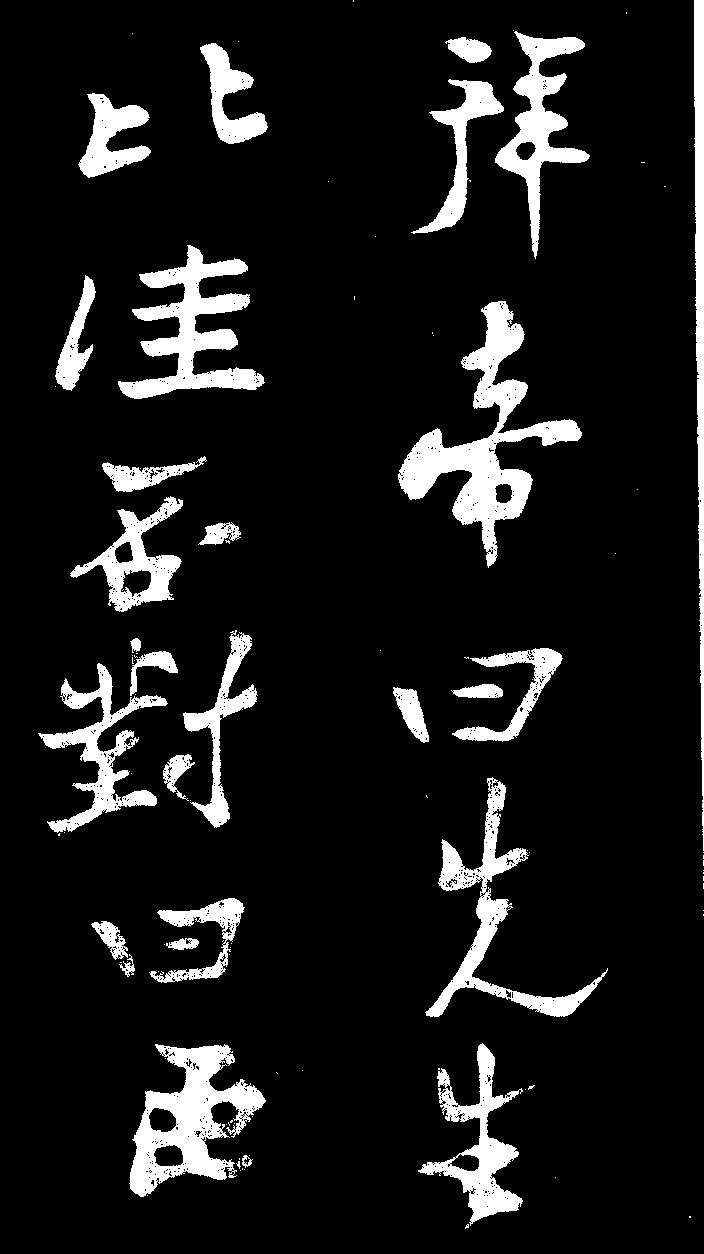 拜帝曰先生
比佳否對曰臣